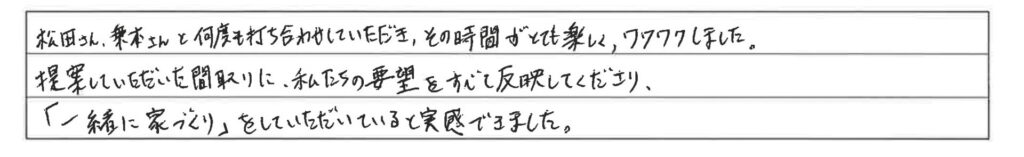 松田さん、乗本さんと何度も打ち合わせしていただき、その時間がとても楽しく、ワクワクしました。
提案していただいた間取りに、私たちの要望をすべて反映してくださり、
「一緒に家づくり」をしていただいていると実感できました。